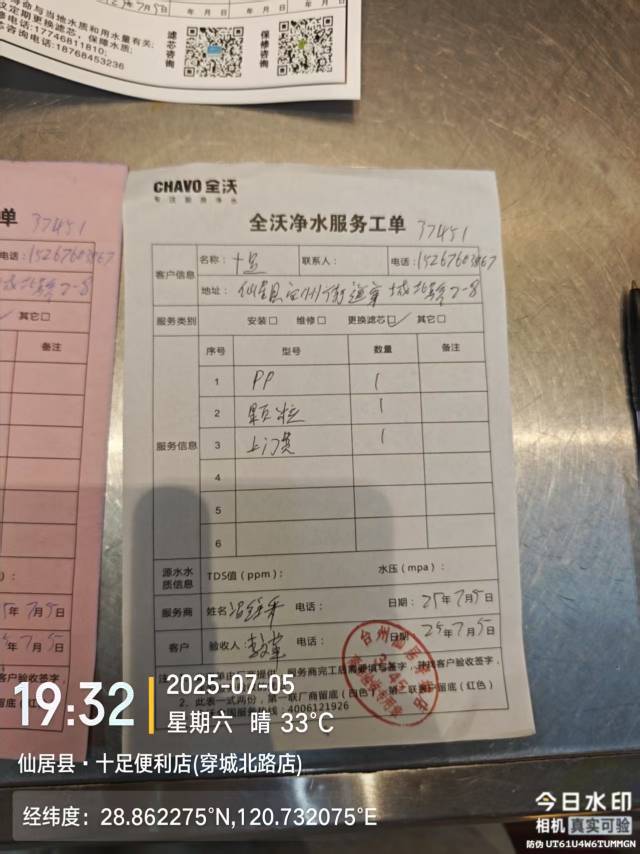 寿命与当地水质和用水量有关:
议定期更换滤芯，保障水质;
修电话:17746811810;
芯咨询电话:18768453236
滤芯咨询
保修咨询
年 月 日
年 月 日
单 37451
电话:15267603867
城北路2-8
其它□
备注
CHAVO 全沃
全沃净水服务工单 37451
客户信息
名称: 十足 联系人: 电话:15267603867
地址: 城北路2-8
服务类别 安装□ 维修□ 更换滤芯☑ 其它□
服务信息
序号 型号 数量 备注
1 PP 1
2 颗粒 1
3 上门费 1
4
5
6
源水水质信息 TDS值（ppm）: 水压（mpa）:
服务商 姓名 电话: 日期: 25年7月5日
客户 验收人 电话: 日期 25年7月5日
年7月5日
年7月5日
服务商完工后需要填写签字，并找客户验收签字，
2、此表一式两份，第一联厂商留底（白色），第二联客户留底（红色）
全国服务热线: 4006121926
客户验收签字，
留底（红色）
19:32
2025-07-05
星期六 晴 33°C
仙居县·十足便利店(穿城北路店)
经纬度: 28.862275°N,120.732075°E
今日水印
相机 真实可验
防伪 UT61U4W6TUMMGN